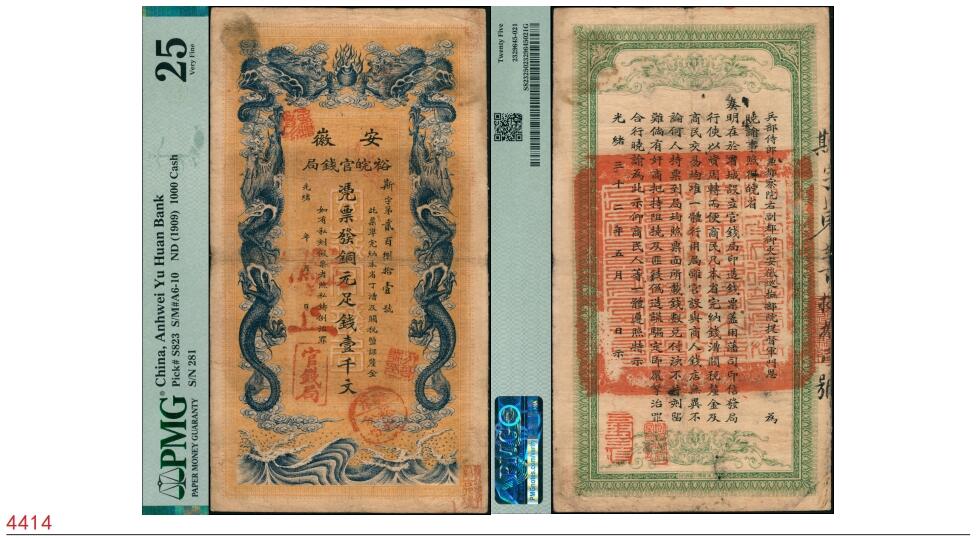 PMG
PAPER MONEY GUARANTY
China, Anhwei Yu Huan Bank
Pick# S823 S/M#A6-10 ND (1909) 1000 Cash
S/N 281
25
Very Fine
安徽
裕皖官錢局
斯字第貳百捌拾壹號
此票準完納本省丁漕及關稅鹽課釐金
憑票發銅元足錢壹千文
如有私刻假票者照私鑄例治罪
光緒 年 月 日
官錢局
Twenty Five
2329645-021
兵部侍郎兼都察院右副都御史安徽巡撫部院提督軍門恩 為
曉諭事照得皖省
奏明在於省城設立官錢局印造錢票蓋用藩司印信發局
行使以資周轉而便商民凡本省完納錢漕關稅釐金及
商民交易均準一體行用局雖官設與商人錢店無異不
論何人持票到局均照票面所載錢數兌付決不
雖倘有奸商把持阻撓及匪徒偽造誆騙定即嚴拿治罪
合行曉諭為此示仰商民人等一體遵照特示
光緒三十二年五月 日示
4414